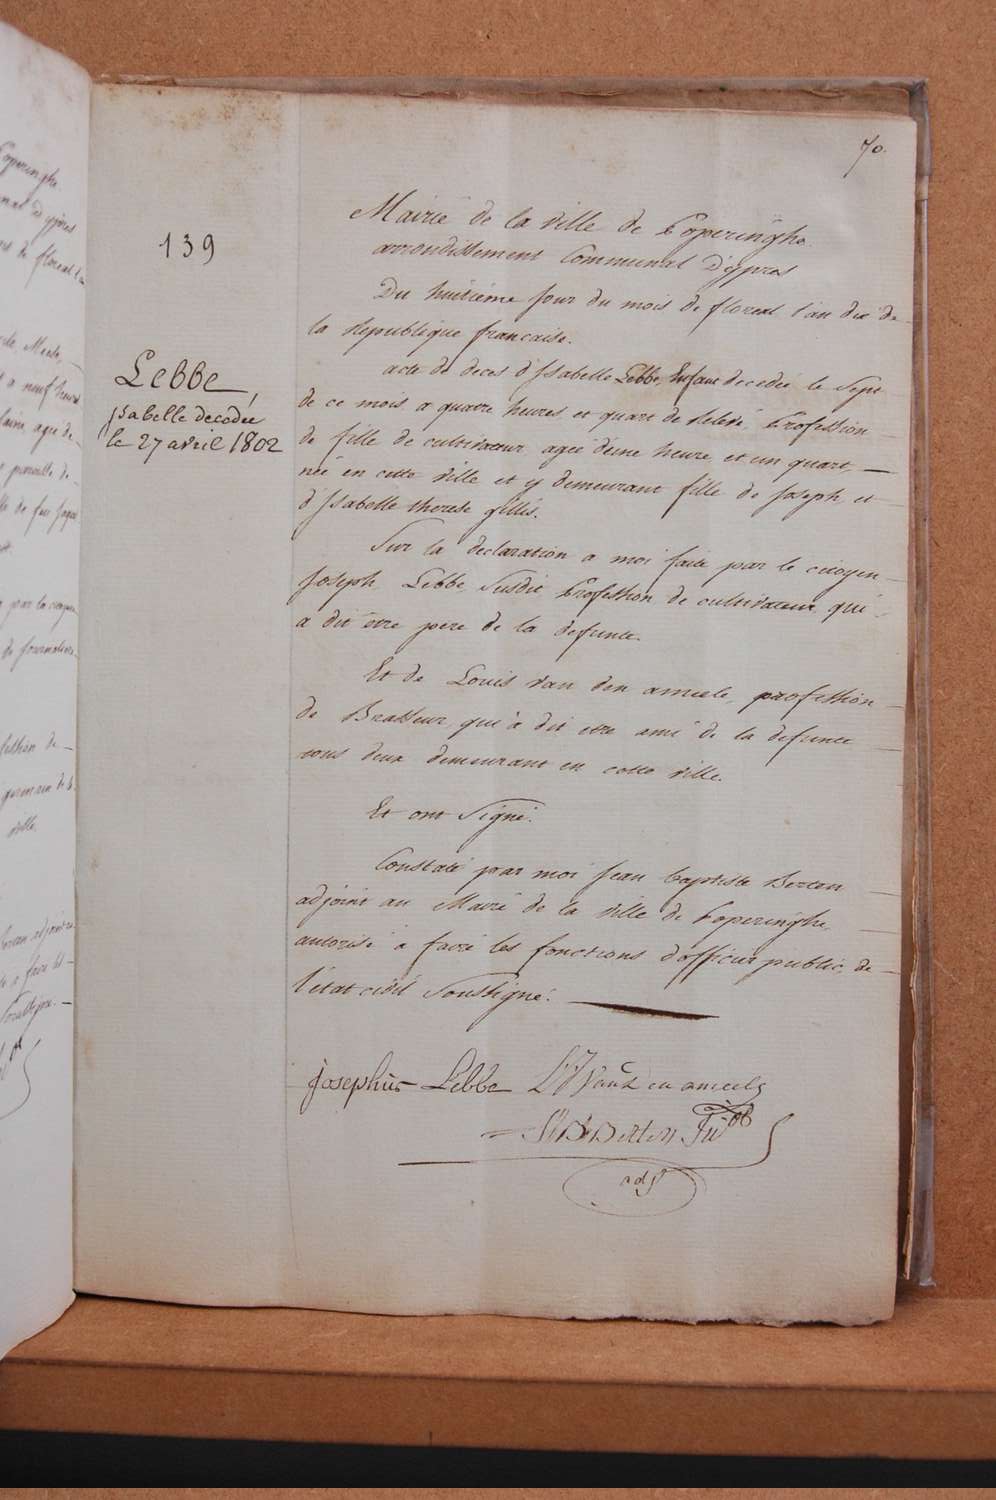 70.
139
Lebbe
Isabelle decedée
le 27 avril 1802
Mairie de la ville de Poperinghe
arrondissement Communal D'ypres
Du huitieme jour du mois de floreal l'an dix de
la Republique francaise.
acte de deces d'Isabelle Lebbe, Enfant decedée le Sept
de ce mois a quatre heures et quart de Relevé, Profession
de fille de cultivateur, agée d'une heure et un quart,
née en cette ville et y demeurant fille de Joseph, et
d'Isabelle therese Gillis.
Sur la declaration a moi faite par le citoyen
Joseph Lebbe, Susdit Profession de cultivateur qui
a dit être pere de la defunte.
Et de Louis van den ameele, profession
de Brasseur, qui à dit etre ami de la defunte
tous deux demeurant en cette ville.
Et ont Signé.
Constaté par moi Jean baptiste Berten
adjoint au Maire de la ville de Poperinghe,
autorisé a faire les fonctions d'officier public de
l'état civil Soussigné.
Josephus Lebbe
Berten
adj